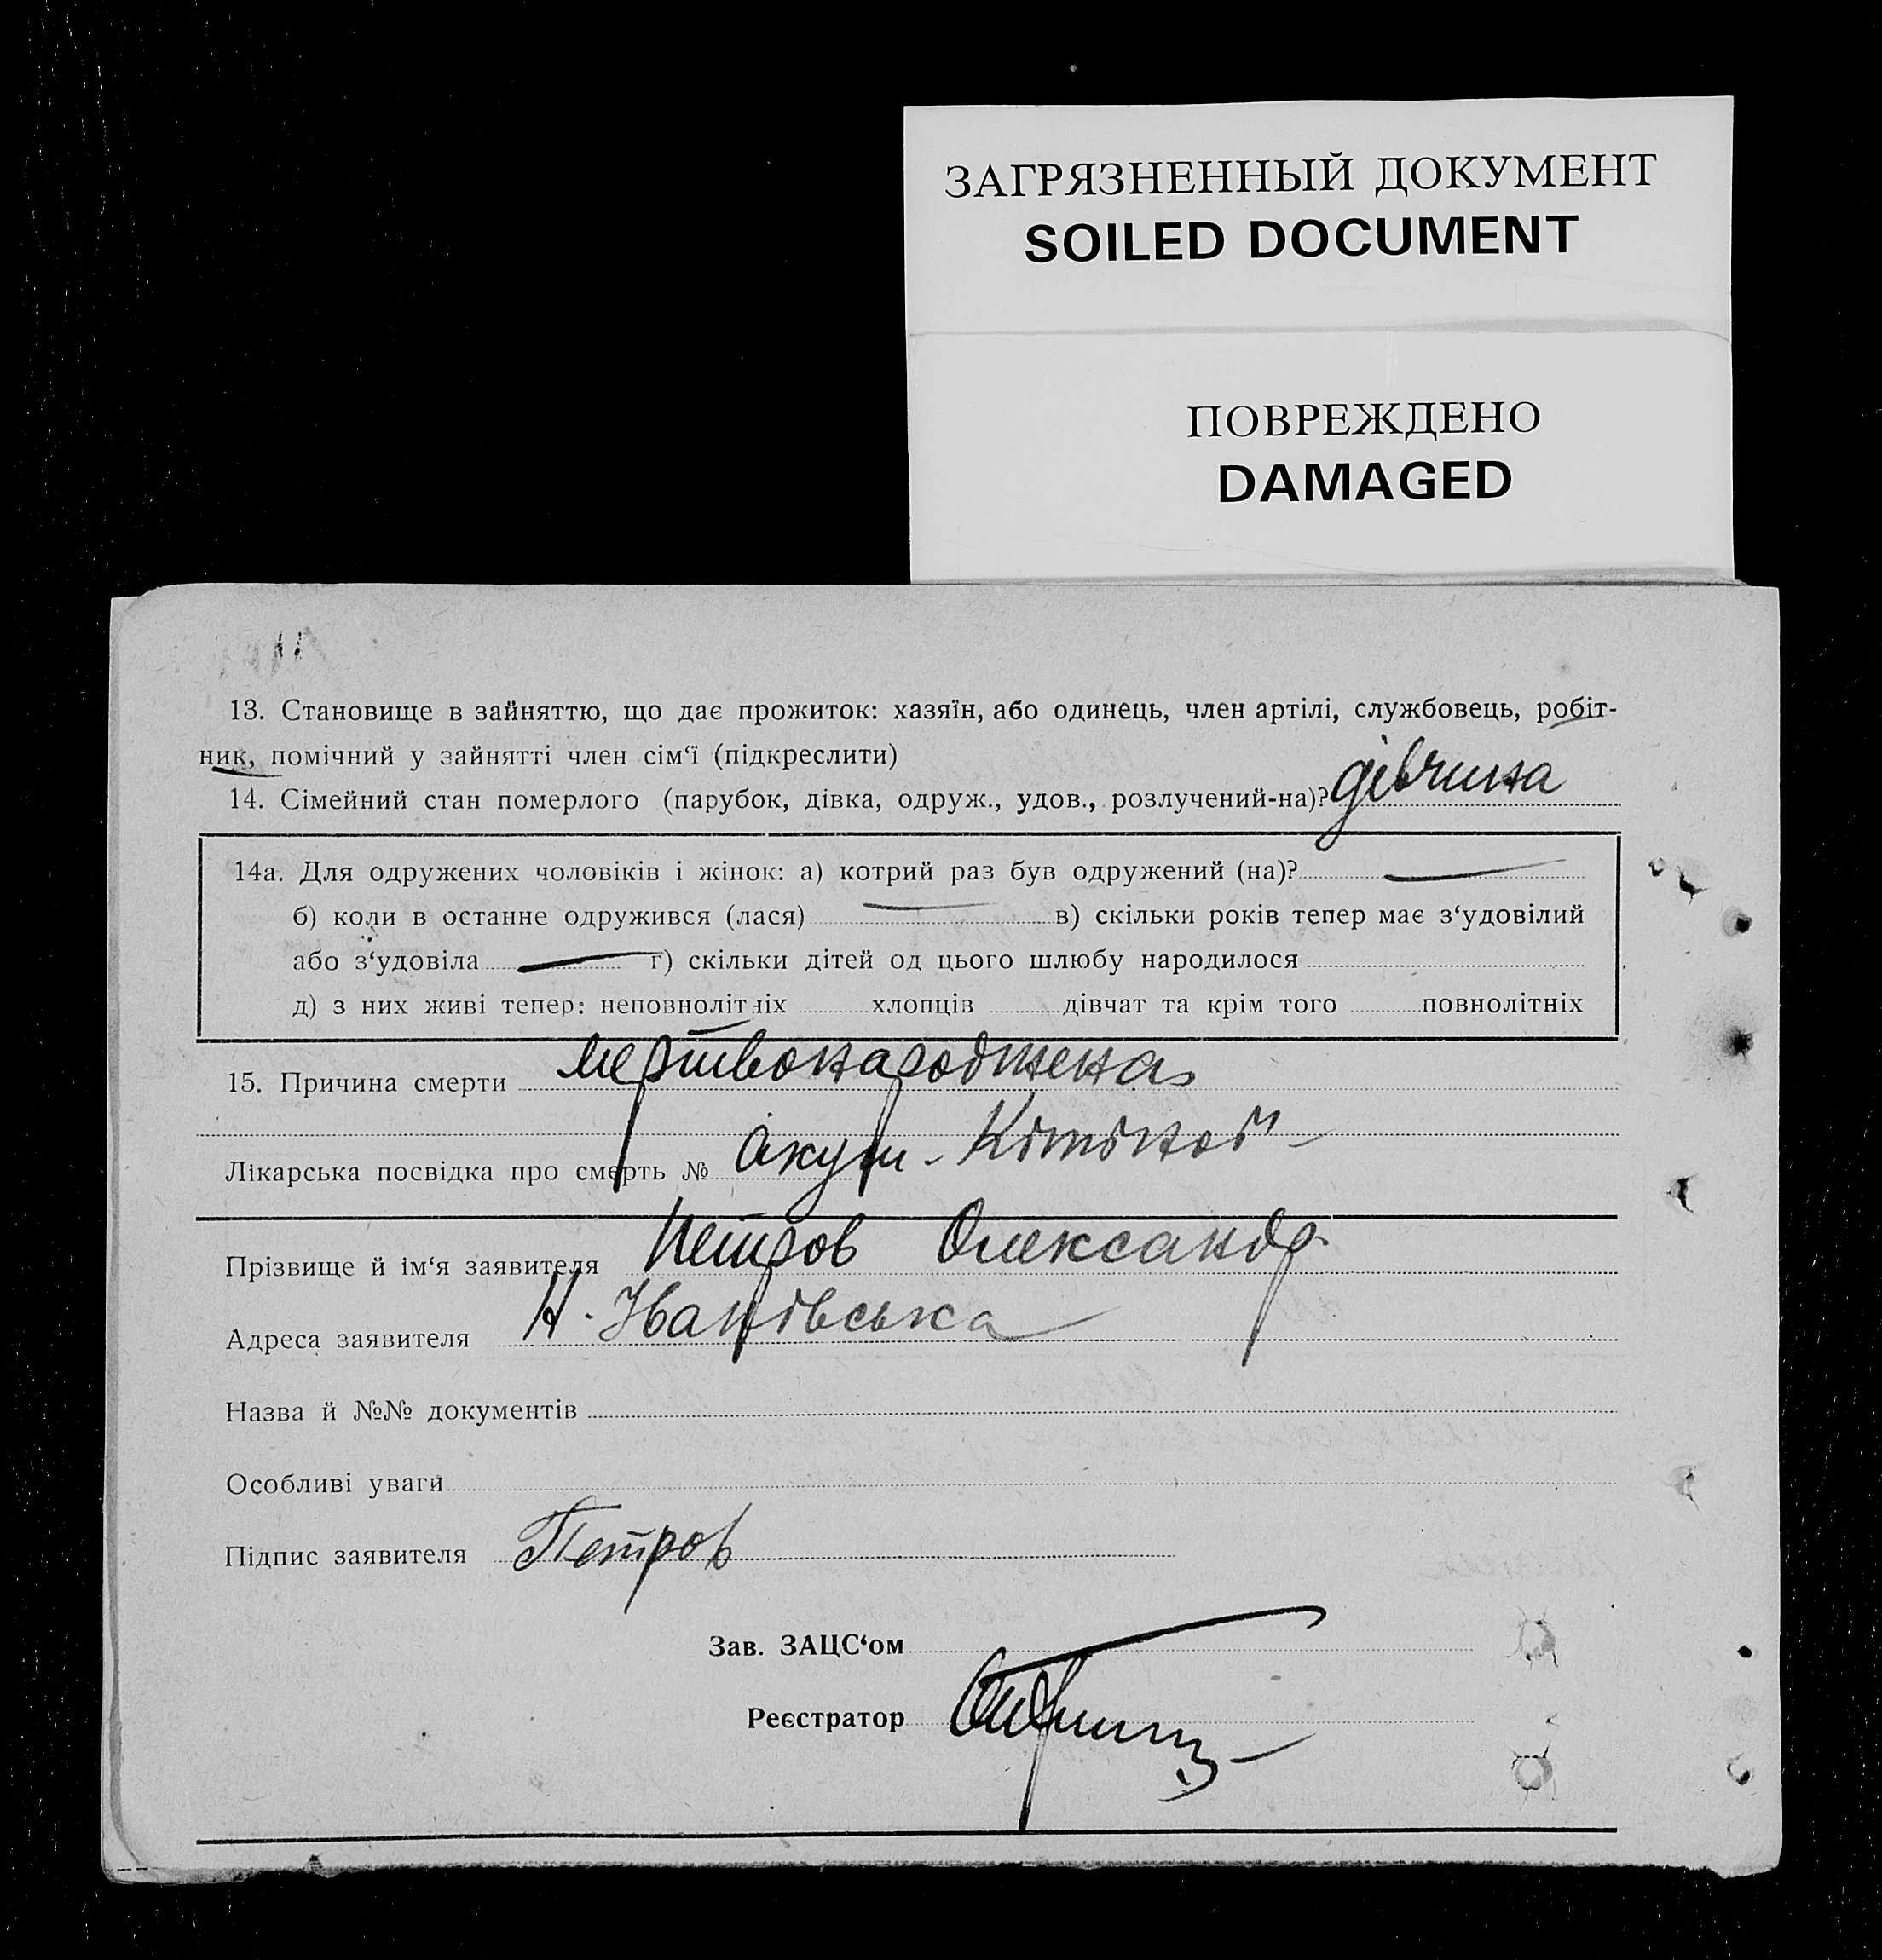 ЗАГРЯЗНЕННЫЙ ДОКУМЕНТ
SOILED DOCUMENT
ПОВРЕЖДЕНО
DAMAGED
13. Становище в зайняттю, що дає прожиток: хазяїн, або одинець, член артілі, службовець, робіт-
ник, помічний у зайнятті член сім‘ї (підкреслити)
14. Сімейний стан померлого (парубок, дівка, одруж., удов., розлучений-на)? дівчина
14а. Для одружених чоловіків і жінок: а) котрий раз був одружений (на)? —
б) коли в останнє одружився (лася) — в) скільки років тепер має з‘удовілий
або з‘удовіла — г) скільки дітей од цього шлюбу народилося
д) з них живі тепер: неповнолітніх хлопців дівчат та крім того повнолітніх
15. Причина смерти мертвонароджена
Лікарська посвідка про смерть № Акуш-
Прізвище й ім‘я заявителя Петров Олександр.
Адреса заявителя Н.
Назва й №№ документів
Особливі уваги
Підпис заявителя Петров
Зав. ЗАЦС‘ом
Реєстратор